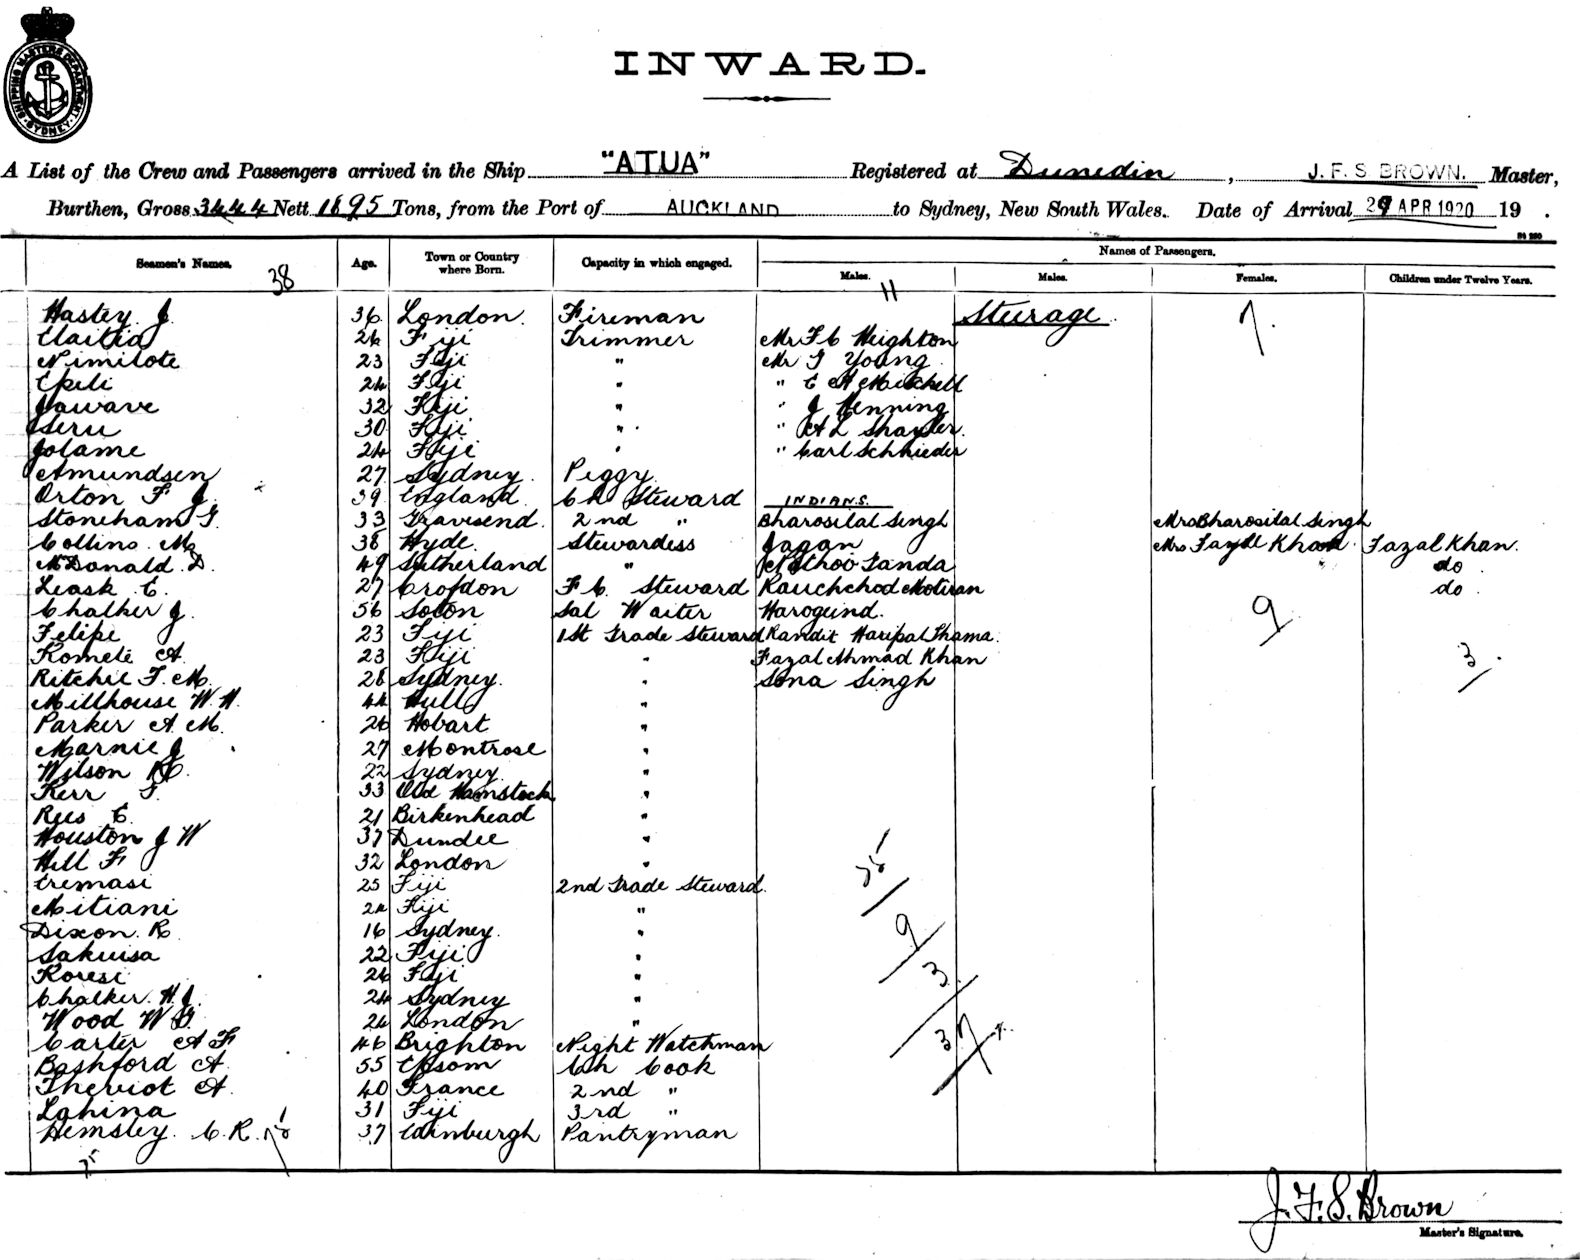 SHIPPING MASTERS DEPARTMENT
SYDNEY
INWARD.
A List of the Crew and Passengers arrived in the Ship "ATUA" Registered at Dunedin, J. F. S BROWN. Master,
Burthen, Gross 3444 Nett 1695 Tons, from the Port of AUCKLAND to Sydney, New South Wales. Date of Arrival 29 APR 1920 19 .
Names of Passengers.
Seamen's Names. 38 Age. Town or Country where Born. Capacity in which engaged. Males. 11 Males. Females. Children under Twelve Years.
Hastey J. 36 London. Fireman Steerage. 7.
26 Fiji Trimmer Mr F C Heighton
Nimilote 23 Fiji " Mr G Young
Epeli 24 Fiji " " C A Mitchell
Jawave 32 Fiji " " J Henning
Seru 30 Fiji " " A L Shayler.
Jolame 24 Fiji " " Carl Schnieder
Amundsen 27 Sydney. Peggy.
Orton F J. 39 England. Ch Steward INDIANS.
Stoneham G. 33 Gravesend. 2nd " Bharosilal Singh Mrs Bharosilal Singh
Collins M. 38 Hyde. Stewardess Jagan Mrs Fazal Khan. Fazal Khan.
McDonald D. 49 Sutherland " Nathoo Fanda do
Leask C. 27 Croydon F C. Steward Rauchchod Motiran do.
Chalker J. 56 Soton Sal Waiter Harogund. 9
Felipe 23 Fiji 1st Trade Steward Randit Haripal Shama.
Komete A. 23 Fiji " Fazal Ahmad Khan 3.
Ritchie T. M. 28 Sydney. " Sona Singh
Millhouse W. H. 44 Hull "
Parker A. M. 26 Hobart "
Marnie J 27 Montrose "
Wilson 22 Sydney. "
Kerr 33 Old "
Rees C. 21 Birkenhead "
Houston J W 37 Dundee "
Hill F 32 London "
Eremasi 25 Fiji 2nd Trade Steward.
Mitiani 24 Fiji "
Dixon. R. 16 Sydney. "
Sakuisa 22 Fiji " 9
Koresi 26 Fiji " 3.
Chalker. H. J. 24 Sydney "
Wood W G. 24 London " 37
Carter A F 46 Brighton Night Watchman
Bashford A. 55 Epsom Ch Cook
Theviot A. 40 France 2nd "
Lahina 31 Fiji 3rd "
Hemsley. C. R. 37 Edinburgh Pantryman
J. F. S. Brown
Master's Signature.